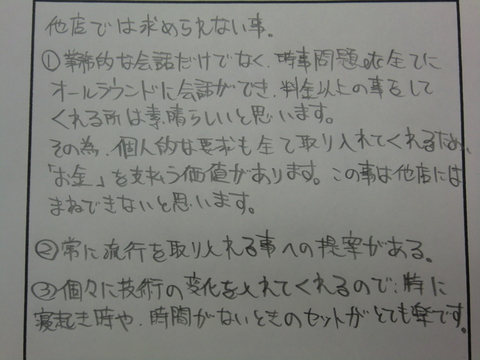 他店では求められない事。
①業務的な会話だけでなく、時事問題etc全てに
オールラウンドに会話ができ、料金以上の事をして
くれる所は素晴らしいと思います。
その為、個人的な要求も全て取り入れてくれるため、
「お金」を支払う価値があります。この事は他店には
まねできないと思います。
②常に流行を取り入れる事への提案がある。
③個々に技術の変化を入れてくれるので、特に
寝起き時や、時間がないときのセットがとても楽です。